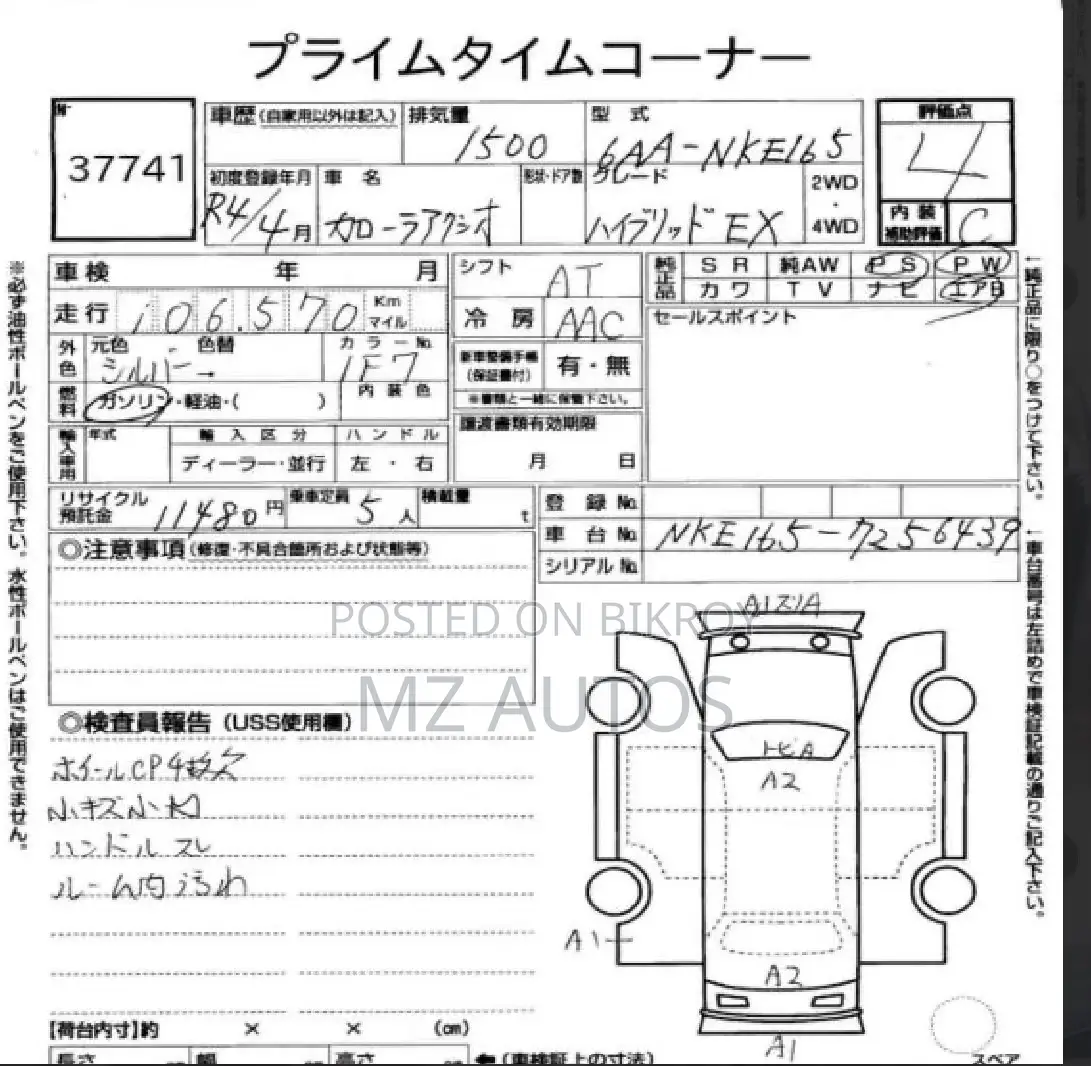 プライムタイムコーナー
№
37741
車歴(自家用以外は記入)
排気量
1500
型 式
6AA-NKE165
評価点
4
初度登録年月
R4/4月
車 名
カローラアクシオ
形状・ドア数
グレード
ハイブリッド EX
2WD
・
4WD
内 装
補助評価
C
車 検 年 月
走 行 106,570 Km
マイル
外色
元色 色替
シルバー→
カラーNo.
1F7
燃料
ガソリン・軽油・( )
内 装 色
輸入車用
年式
輸 入 区 分
ディーラー・並行
ハ ン ド ル
左 ・ 右
シフト
AT
冷 房
AAC
新車整備手帳
(保証書付)
有・無
※書類と一緒に保管下さい。
譲渡書類有効期限
月 日
純正品
S R 純AW P S P W
カワ T V ナビ エアB
セールスポイント
リサイクル
預託金
11480円
乗車定員
5人
積載量
t
登 録 No.
車 台 No. NKE165-7256439
シリアル No.
◎注意事項(修復・不具合箇所および状態等)
◎検査員報告(USS使用欄)
ホイールCP4枚欠
小キズ小凹
ハンドルスレ
ルーム内汚れ
A1ズリA
トビA
A2
A1
A2
A1
【荷台内寸】約 × × (cm)
長さ
幅
高さ
(車検証上の寸法)
スペア
※必ず油性ボールペンをご使用下さい。水性ボールペンはご使用できません。
←純正品に限り○をつけて下さい。
←車台番号は左詰めで車検証記載の通りご記入下さい。
POSTED ON BIKROY
MZ AUTOS